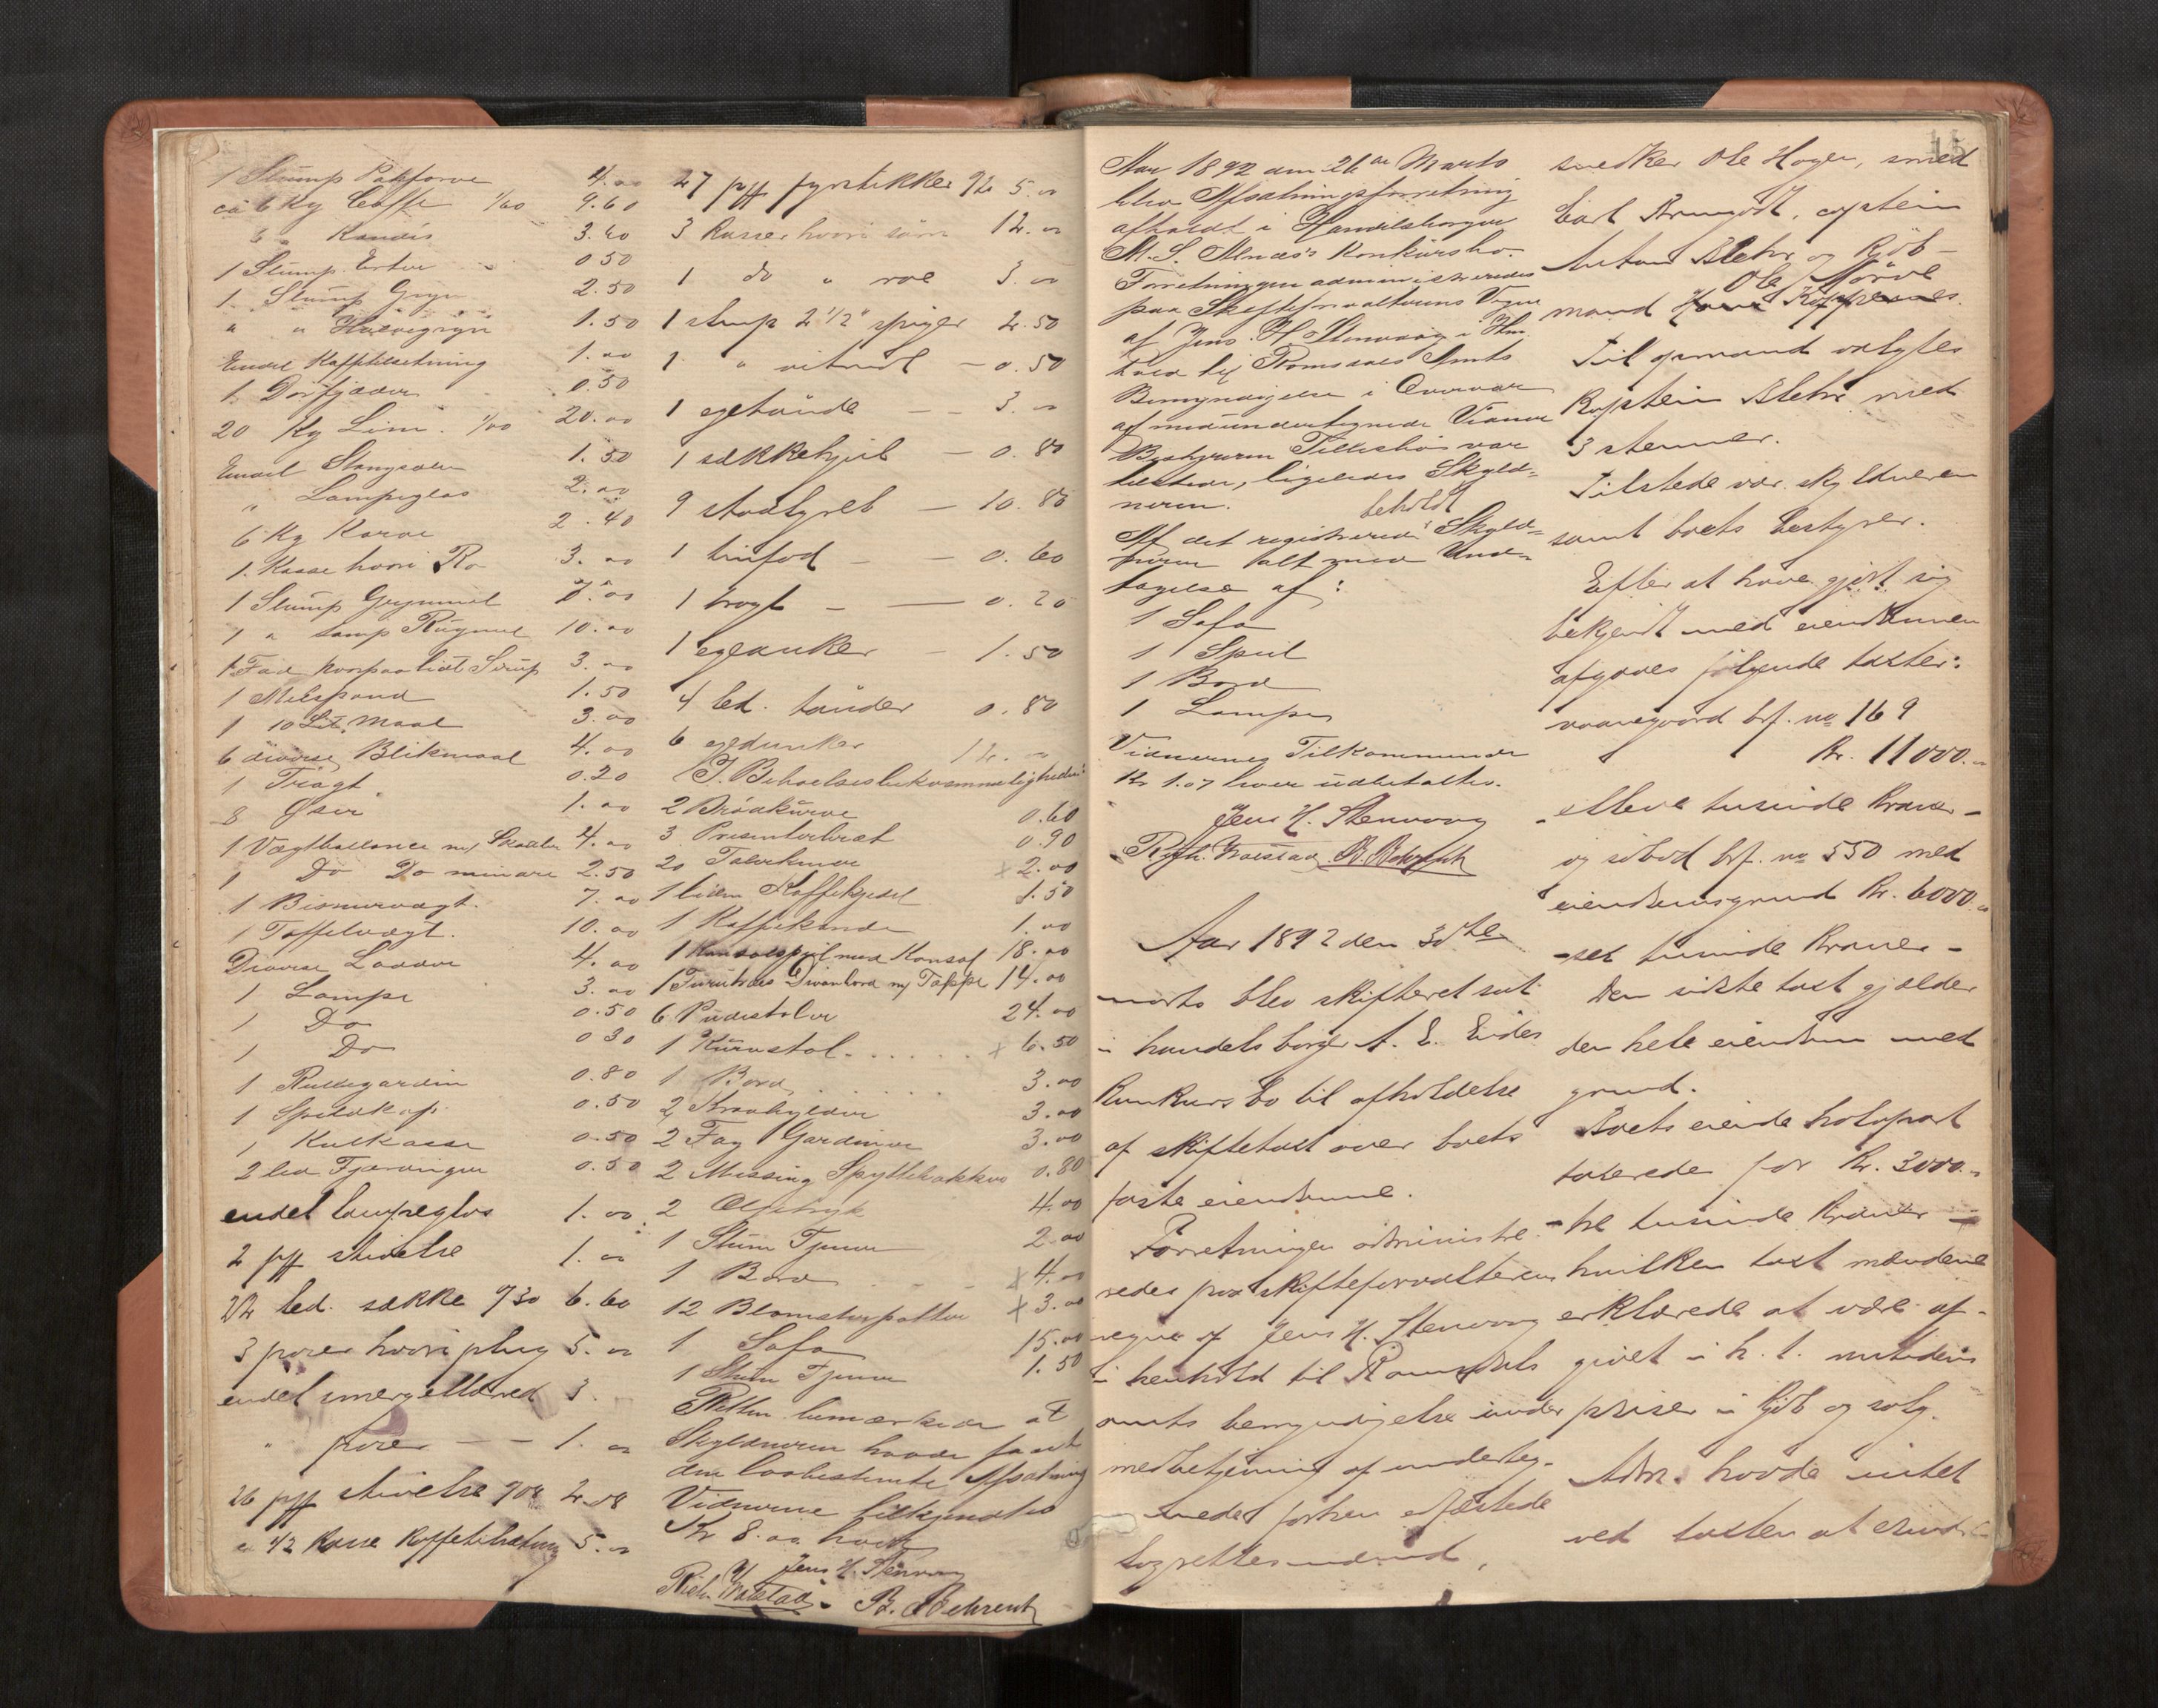 1 Stump Pakfarve 4.00
ca 6 Kg Caffe 1/60 9.60
6 " Kandis 3.60
1 Stump Erter 0 50
1 Stump Gryn 2.50
" " Hvedegryn 1.50
Endel Kaffetilsetning 1.00
1 Dørfjæder 0.50
20 Kg Lim 1/00 20.00
Endel Stangsæbe 1.50
" Lampeglas 2.00
6 Kg Karve 2.40
1 Kasse hvori Ro 3.00
1 Stump Grynmel 7.00
1 " samp Rugmel 10.00
1 Fad hvorpaa lidt Sirup 3.00
1 Melspand 1.50
1 10 Lit. Maal 3.00
6 diverse Blikmaal 4.00
1 Tragt 0.20
8 Øser 1.00
1 Vægtballance m/ Skaaler 4.00
1 Do Do mindre 2.50
1 Bismervægt. 7.00
1 Taffelvægt. 10.00
Diverse Lodder 4.00
1 Lampe 3.00
1 Do 0.50
1 Do 0 30
1 Rullegardin 0.80
1 Speilskap 0.50
1 Kulkasse 0.50
2 led Fjerdinger 0.50
endel lampeglas 1.00
2 pff stivelse 1.00
22 led. sække 930 6.60
3 poser hvori plug 5.00
endel smergellærred 3.
" poser 1.00
26 pff stivelse 708 2.08
a 42 Kasse Kaffetilsetning 5.00
27 pff fyrstikker 5.00
3 Kasser hvori søm 12.00
1 do " roe 3.00
1 stump 2 1/2" spiger 2.50
1 " vitriol 0.50
1 egetønde 3.00
1 sækkehjul 0.80
9 stadtyreb 10.80
1 tinfad 0.60
1 tragt 0.20
1 egeanker 1.50
4 led. tønder 0.80
6 egdunker 12.00
I. Behoelseslukommeligheder:
2 Brødkurve 0.60
3 Presenterbret 0.90
20 Talerkener 2.00
1 liden Kaffekjedel 1.50
1 Kaffekande 1.00
1 Konsolspeil med Konsol 18.00
1 Furutræs Divanbord m/ Teppe 14.00
6 Pudestoler 24.00
1 Kurvstol 6.50
1 Bord 3.00
2 Kroghylder 3.00
2 Fag Gardiner 3.00
2 Messing Spyttebakker 0.80
2 Olietryk 4.00
1 Stum Tjener 2.00
1 Bord 4.00
12 Blomsterpotter 3.00
1 Sofa 15.00
1 Stum Tjener 1.50
Retten bemærkede at
Skyldneren havde faaet
den lovbestemte Afsætning
Vidnerne tilkjendtes
Kr 8.00 hver
Jens H. Stenvaag
B. Behrent
Aar 1892 den 26de Marts
blev Afsætningsforretning
afholdt i Handelsborger
M. S. Alnæs's Konkursbo.
Forretningen administreredes
paa Skifteforvalterens Vegne
af Jens H. Stenvaag i Hen
hold til Romsdals Amts
Bemyndigelse i Overvær
af medundertegnede Vidner
Bestyreren Tilleshøi var
tilstede, ligeledes Skyld-
neren.
Af det registrerede beholdt Skyld-
neren Alt med Und-
tagelse af:
1 Sofa
1 Speil
1 Bord
1 Lampe
Vidnernes Tilkommende
Kr 1.07 hver udbetaltes.
Jens H. Stenvaag
B. Behrent
Aar 1892 den 30te
marts blev skifteret sat
i handelsborger A. E. Eides
Konkursbo til afholdelse
af skiftetaxt over boets
faste eiendomme.
Forretningen administre-
redes paa skifteforvalterens
vegne af Jens H. Stenvaag
i henhold til Romsdals
amts bemyndigelse under
medbetjening af underteg-
nede forhen edfæstede
lagrettesmænd,
snedker Ole Hagen, smed
Carl Strengodt, captein
Anton Blehr og Kjøb-
mand Ole Nørve
Til formand valgtes
Kaptein Blehr med
3 stemmer.
Tilstede var skyldneren
samt boets bestyrer.
Efter at have gjort sig
bekjendt med eiendommen
afgaves følgende taxter:
vaanegaard brf. no 169
Kr. 11000.00
- elleve tusinde Kroner -
og søbod brf. no 550 med
eiendomsgrund Kr. 6000.00
- sex tusinde Kroner -
Den sidste taxt gjælder
den hele eiendom med
grund.
Boets eiende halvpart
taxeredes for Kr. 3000.00
- tre tusinde Kroner -
hvilken taxt mændene
erklærede at være af-
givet i h. t. nutidens
priser i kjøb og salg.
Adm. havde intet
ved taxten at erindre